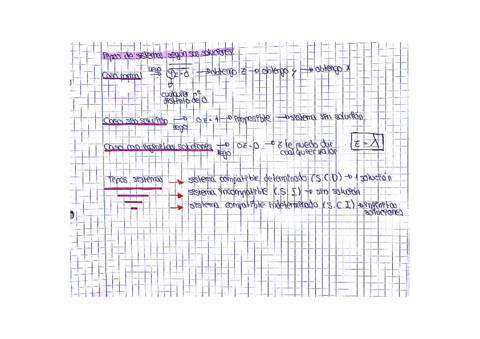 Tipos de sistemas según sus soluciones:
Caso normal llego □z=0 → obtengo z → obtengo y → obtengo x
cualquier nº
distinto de 0.
Caso sin solución → 0z=1 → imposible → sistema sin solución
llego
Caso con infinitas soluciones → 0z=0 → z le puedo dar z=λ
llego cualquier valor
Tipos sistemas → sistema compatible determinado (S.C.D) → 1 solución
→ sistema incompatible (S.I) → sin solución
→ sistema compatible indeterminado (S.C.I) → infinitas
soluciones